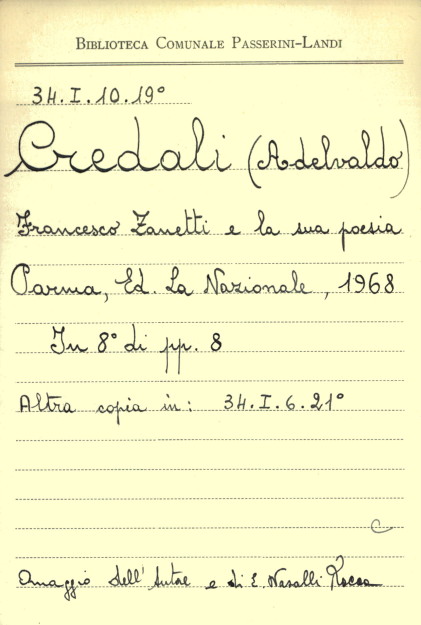 BIBLIOTECA COMUNALE PASSERINI-LANDI
34.I.10.19°
Credali (Adelvaldo)
Francesco Zanetti e la sua poesia
Parma, Ed. La Nazionale, 1968
In 8° di pp. 8
Altra copia in: 34.I.6.21°
C
Omaggio dell'Autore e di E. Nasalli Rocca